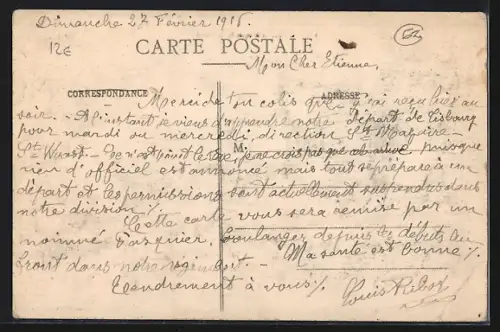 Dimanche 27 Février 1915.
12€
CARTE POSTALE
Mon Cher Etienne,
CORRESPONDANCE
ADRESSE
Merci de ton colis que j'ai reçu hier au
soir. A l'instant je viens d'apprendre notre départ de
pour mardi ou mercredi, direction St
St Waast - M. je ne crois pas que puisque
rien d'officiel est annoncé mais tout se prépare à un
départ et les permissions sont actuellement suspendues dans
notre division %.
Cette carte vous sera remise par un
nommé Pasquier, boulanger depuis le début au
front dans notre régiment - Ma santé est bonne %
Tendrement à vous %
Louis